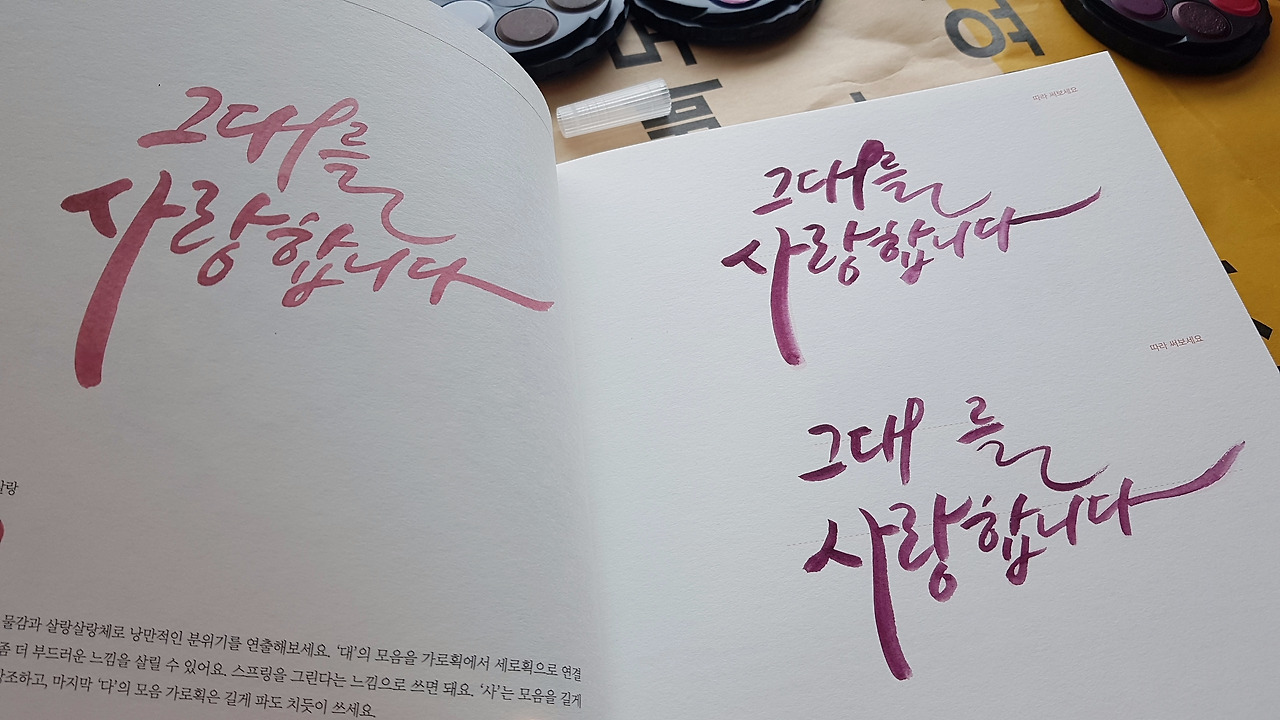 그대를
사랑합니다
살랑
물감과 살랑살랑체로 낭만적인 분위기를 연출해보세요. ‘대’의 모음을 가로획에서 세로획으로 연결
좀 더 부드러운 느낌을 살릴 수 있어요. 스프링을 그린다는 느낌으로 쓰면 돼요. ‘사’는 모음을 길게
강조하고, 마지막 ‘다’의 모음 가로획은 길게 파도 치듯이 쓰세요.
따라 써보세요
그대를
사랑합니다
따라 써보세요
그대를
사랑합니다